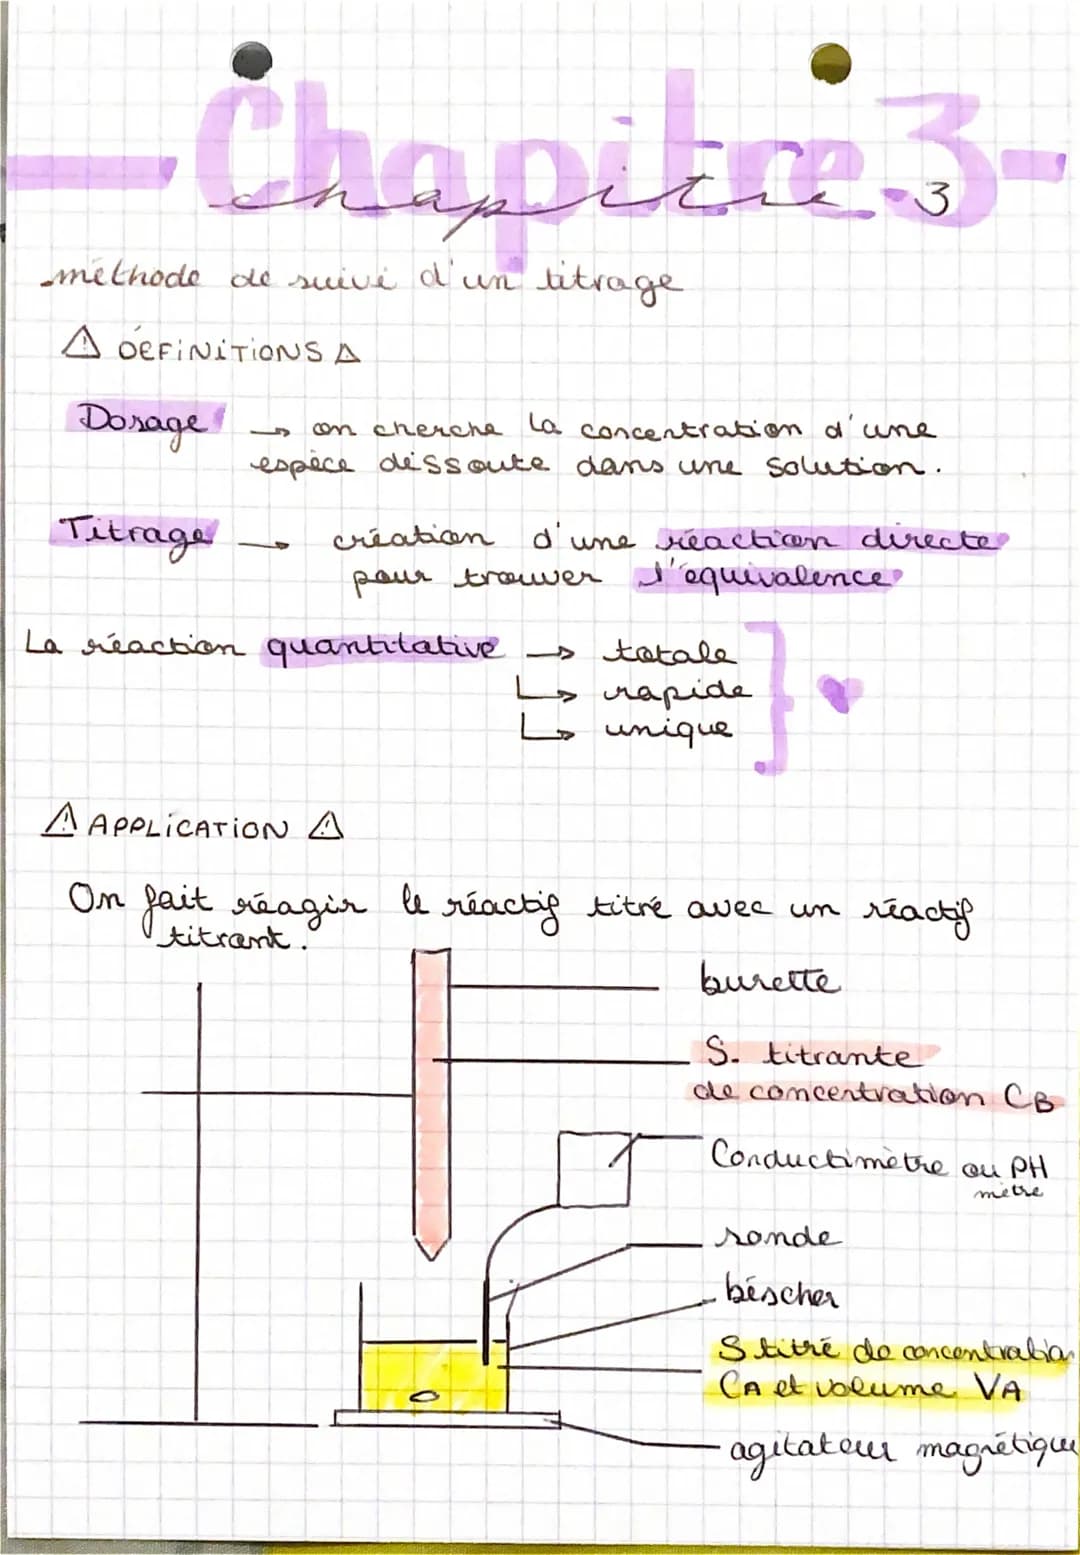 Chapitre 3
chapitre 3
méthode de suivi d'un titrage
⚠ DÉFINITIONS ⚠
Dosage → on cherche la concentration d'une
espèce dissoute dans une solution.
Titrage → création d'une réaction directe
pour trouver l'équivalence
La réaction quantitative → totale
↳ rapide
↳ unique
⚠ APPLICATION ⚠
On fait réagir le réactif titré avec un réactif
titrant.
burette
S. titrante
de concentration CB
Conductimètre ou PH
mètre
sonde
béscher
S titré de concentration
CA et volume VA
agitateur magnétique